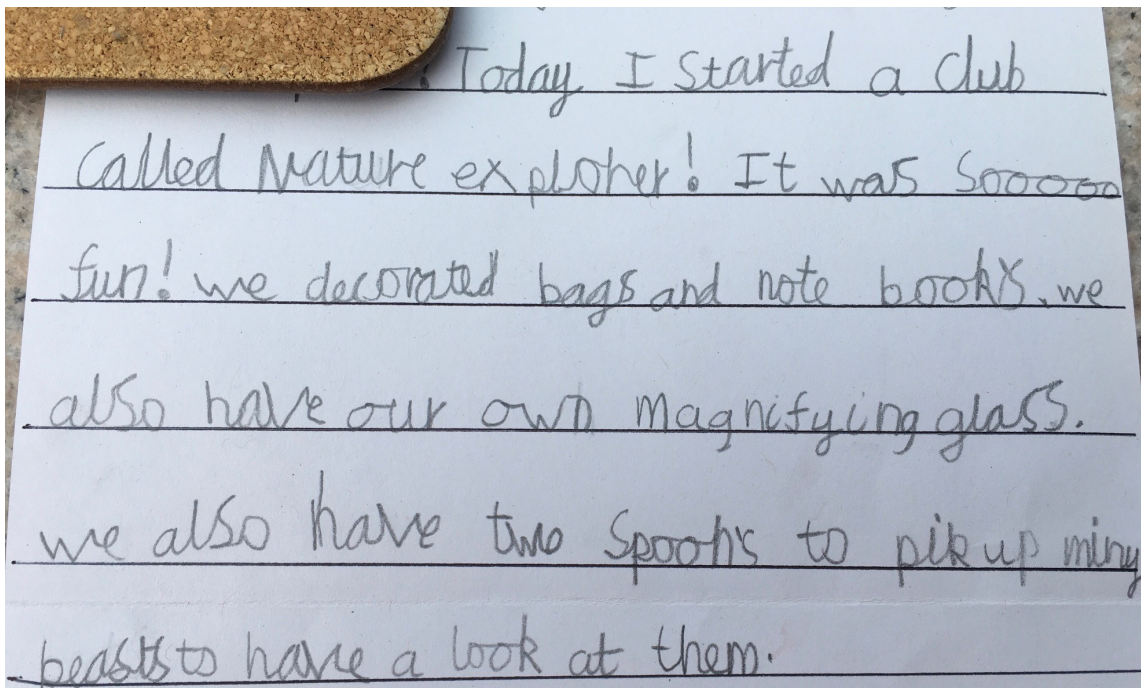 Today I started a club
called Nature exploher! It was sooooo
fun! we decorated bags and note books. we
also have our own magnifying glass.
we also have two spoons to pik up miny
beasts to have a look at them.